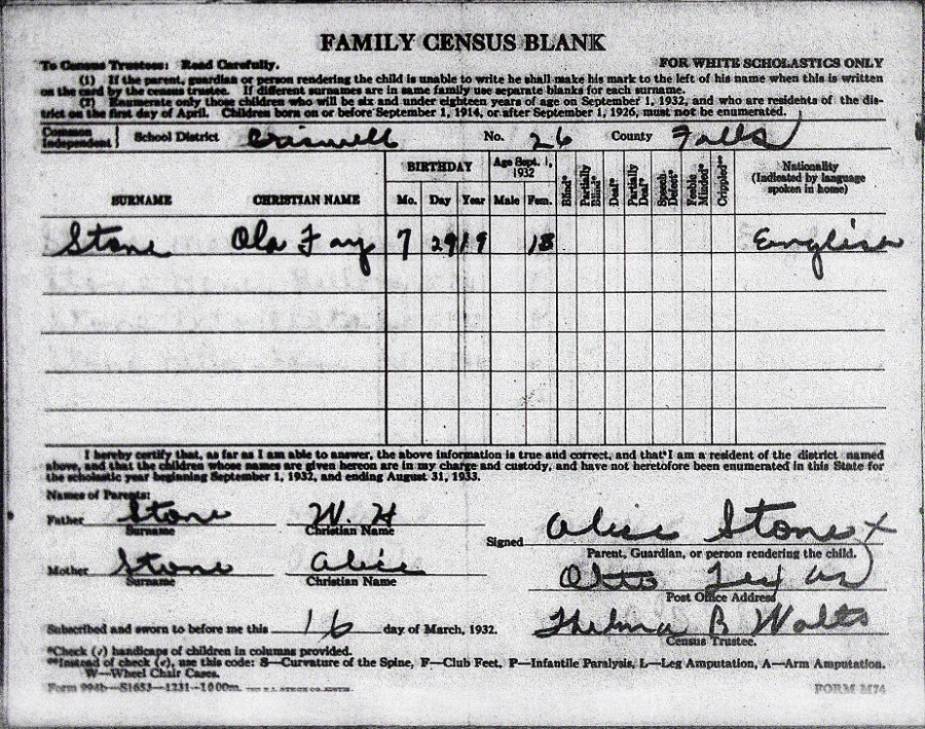 FAMILY CENSUS BLANK
To Census Trustees: Read Carefully. FOR WHITE SCHOLASTICS ONLY
(1) If the parent, guardian or person rendering the child is unable to write he shall make his mark to the left of his name when this is written
on the card by the census trustee. If different surnames are in same family use separate blanks for each surname.
(2) Enumerate only those children who will be six and under eighteen years of age on September 1, 1932, and who are residents of the dis-
trict on the first day of April. Children born on or before September 1, 1914, or after September 1, 1926, must not be enumerated.
Common
Independent } School District Criswell No. 26 County Falls
BIRTHDAY Age Sept. 1, 1932 Nationality
(Indicated by language
spoken in home)
SURNAME CHRISTIAN NAME Mo. Day Year Male Fem. Blind* Partially Blind* Deaf* Partially Deaf* Speech Defect* Feeble Minded* Crippled**
Stone Ola Fay 7 29 19 13 English
I hereby certify that, as far as I am able to answer, the above information is true and correct, and that I am a resident of the district named
above, and that the children whose names are given hereon are in my charge and custody, and have not heretofore been enumerated in this State for
the scholastic year beginning September 1, 1932, and ending August 31, 1933.
Names of Parents:
Father Stone W. H
Surname Christian Name
Signed Alice Stone x
Parent, Guardian, or person rendering the child.
Mother Stone Alice
Surname Christian Name
Otto Texas
Post Office Address
Subscribed and sworn to before me this 16 day of March, 1932.
Thelma B Walts
Census Trustee.
*Check (✓) handicaps of children in columns provided.
**Instead of check (✓), use this code: S—Curvature of the Spine, F—Club Feet, P—Infantile Paralysis, L—Leg Amputation, A—Arm Amputation.
W—Wheel Chair Cases.
Form 994b—S1653—1231—1000m. FORM M74